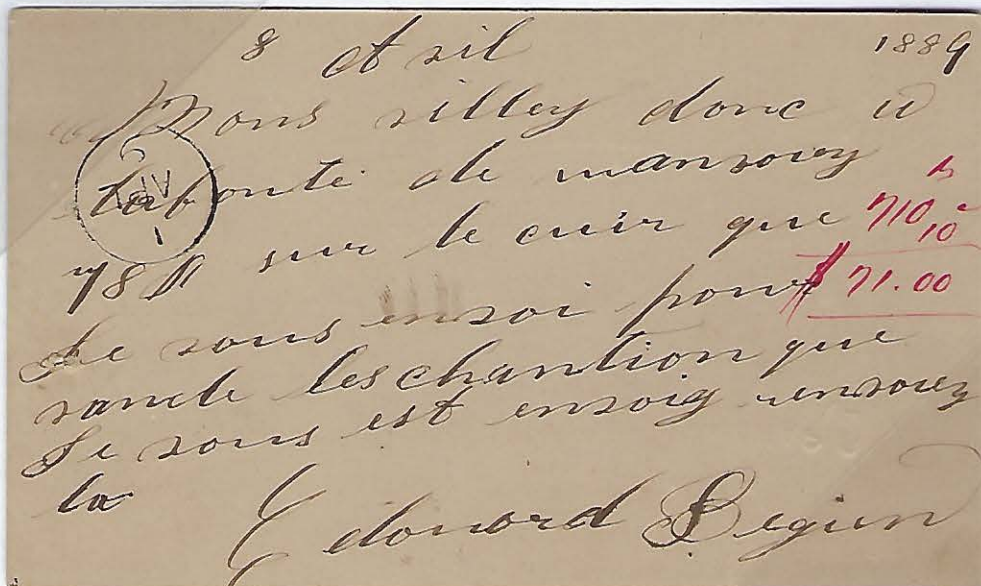 8 Avril 1889
vous villey donc a
labonté de manvoiy
78 $ sur le cuir que 710 lb
10 c
Je vous envoi pour $ 71.00
vante leschantion que
Je vous est envoig renvoiy
la
Edouard Begin